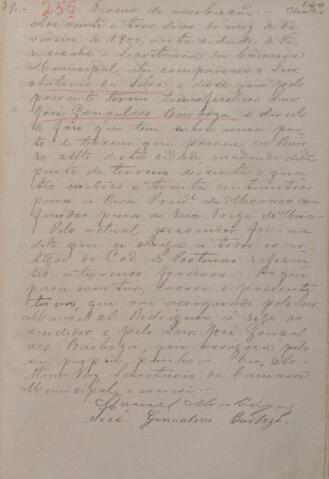 39.- 255 Termo de averbação.-
Aos vinte e tres dias do mez de Fe
vereiro de 1900, nesta cidade de Pi
racicaba e Secretaria da Camara
Municipal, ahi compareceu o Snr.
Antonio da Silva e disse que pelo
presente termo transfere ao Snr.
José Gonçalves Barboza o direi
to que tem sobre uma par
te de terreno que possue no Bair
ro Alto desta cidade, medindo dita
parte de terreno sessenta e qua
tro metros e trinta centimetros
para a Rua Prud.e de Moraes
fundos para a Rua Treze de Maio
Pelo actual possuidor foi me
dito que se obriga a todos os ar
tigos do Cod. de Posturas referen
tes a terrenos foreiros. Do que
para constar, lavrei o presente
termo, que vai assignado pelo Snr
Manoel A. Rodrigues a rogo do
vendedor e pelo Snr. José Gonçal
ves Barboza, que assigna pelo
seu proprio punho. Eu,
Secretario da Camara
Municipal, o escrevi.
Manuel Alves
José Gonçalves Barboza